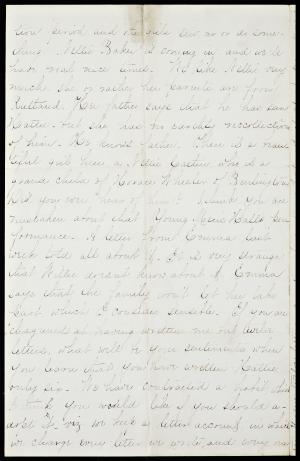 tion period and the girls sew, or do some-
thing. Nellie Baker is coming in and we'll
have real nice times. We like Nellie very
much. She or rather her parents are from
Rutland. Her father says that he has seen
Hattie. but she has no earthly recollection
of him. He knows Father. There is a
girl here a Nellie Castle who is a
grand child of Horace Wheeler of Burlington
Did you ever hear of him? I think you are
mistaken about that Young Mens Halls per-
formance. A letter from Emma last
week told all about it. It is very strange
that Willie doesn't know about it. Emma
says that the family won't let her take
part which I consider sensible. If you are
chagrined at having written me but
letters, what will be your sentiments when
you learn that you have written Hattie
only six. We have contracted a habit which
I think you would like if you should a-
dopt it. viz we keep a letter account in which
we charge every letter we write, and every one